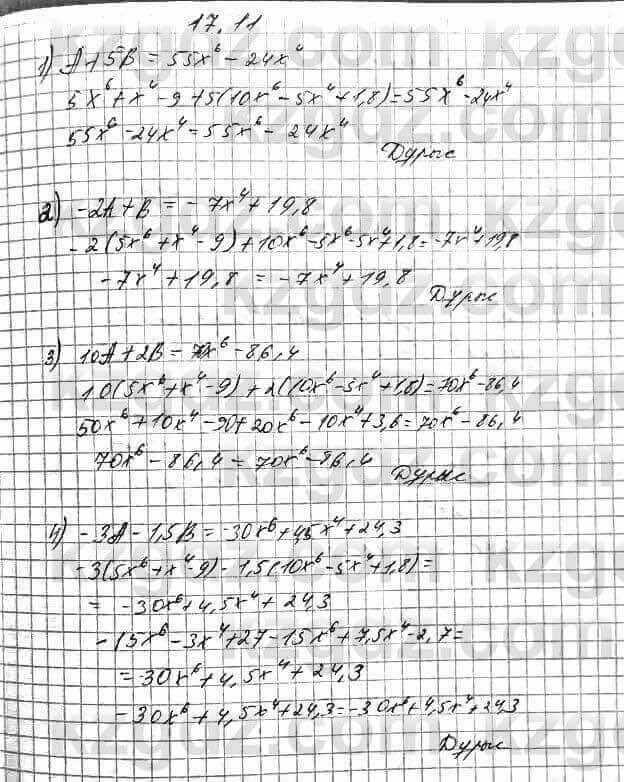 17.11
1) A+5B = 55x⁶ - 24x⁴
5x⁶+x⁴-9+5(10x⁶-5x⁴+1,8)=55x⁶-24x⁴
55x⁶-24x⁴=55x⁶-24x⁴
Дұрыс
2) -2A+B = -7x⁴+19,8
-2(5x⁶+x⁴-9)+10x⁶-5x⁶-5x⁴+1,8=-7x⁴+19,8
-7x⁴+19,8 = -7x⁴+19,8
Дұрыс
3) 10A+2B=70x⁶-86,4
10(5x⁶+x⁴-9)+2(10x⁶-5x⁴+1,8)=70x⁶-86,4
50x⁶+10x⁴-90+20x⁶-10x⁴+3,6=70x⁶-86,4
70x⁶-86,4=70x⁶-86,4
Дұрыс
4) -3A-1,5B=-30x⁶+4,5x⁴+24,3
-3(5x⁶+x⁴-9)-1,5(10x⁶-5x⁴+1,8)=
= -30x⁶+4,5x⁴+24,3
-15x⁶-3x⁴+27-15x⁶+7,5x⁴-2,7=
=-30x⁶+4,5x⁴+24,3
-30x⁶+4,5x⁴+24,3=-30x⁶+4,5x⁴+24,3
Дұрыс
kzgdz.com